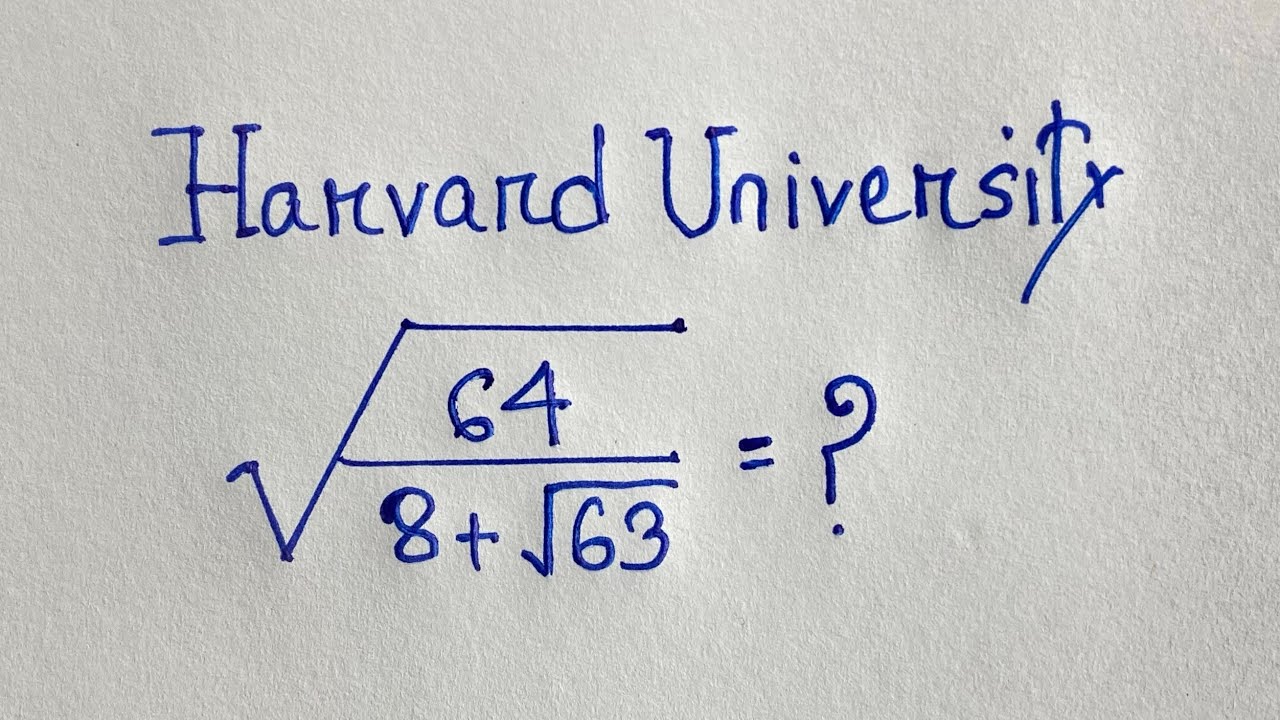 Harvard University
√(64/(8+√63)) = ?